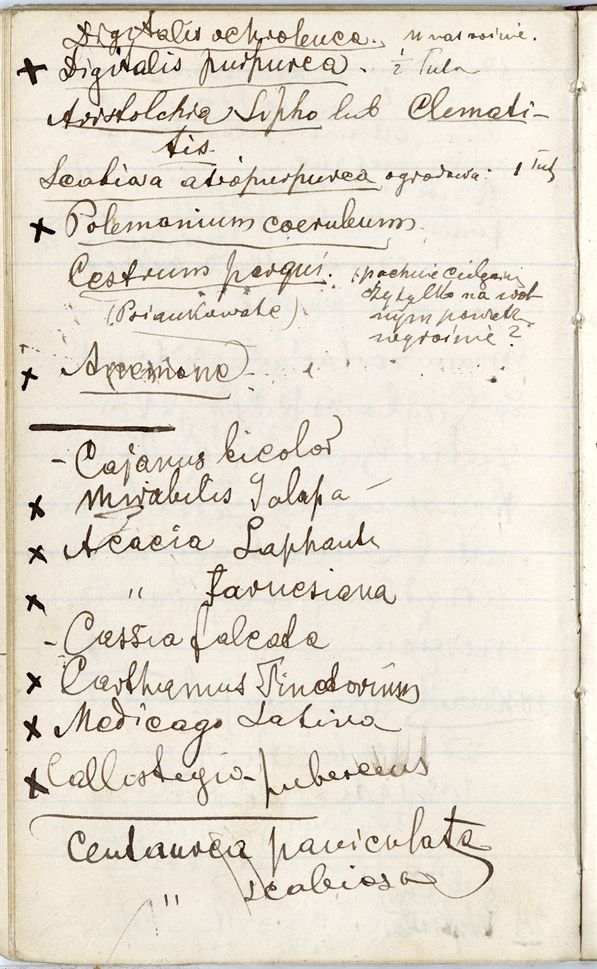 Digitalis ochroleuca. u nas rośnie.
x Digitalis purpurea. ½ Tuta
Aristolchia Sipho lub Clemati-
tis.
Scabiosa atropurpurea ogrodowa. 1 Tut
x Polemonium coeruleum.
Cestrum parqui. pachnie
(Psiankowate) czy tylko na wol
nym powietrz
wyrośnie?
x Anemone
- Cajanus bicolor
x Mirabilis Jalapa -
x Acacia Lophanta
x " farnesiana
- Cassia falcata
x Carthamus Tinctorium
x Medicago Lativa
x Callistegia pubescens
Centaurea paniculata
" scabiosa